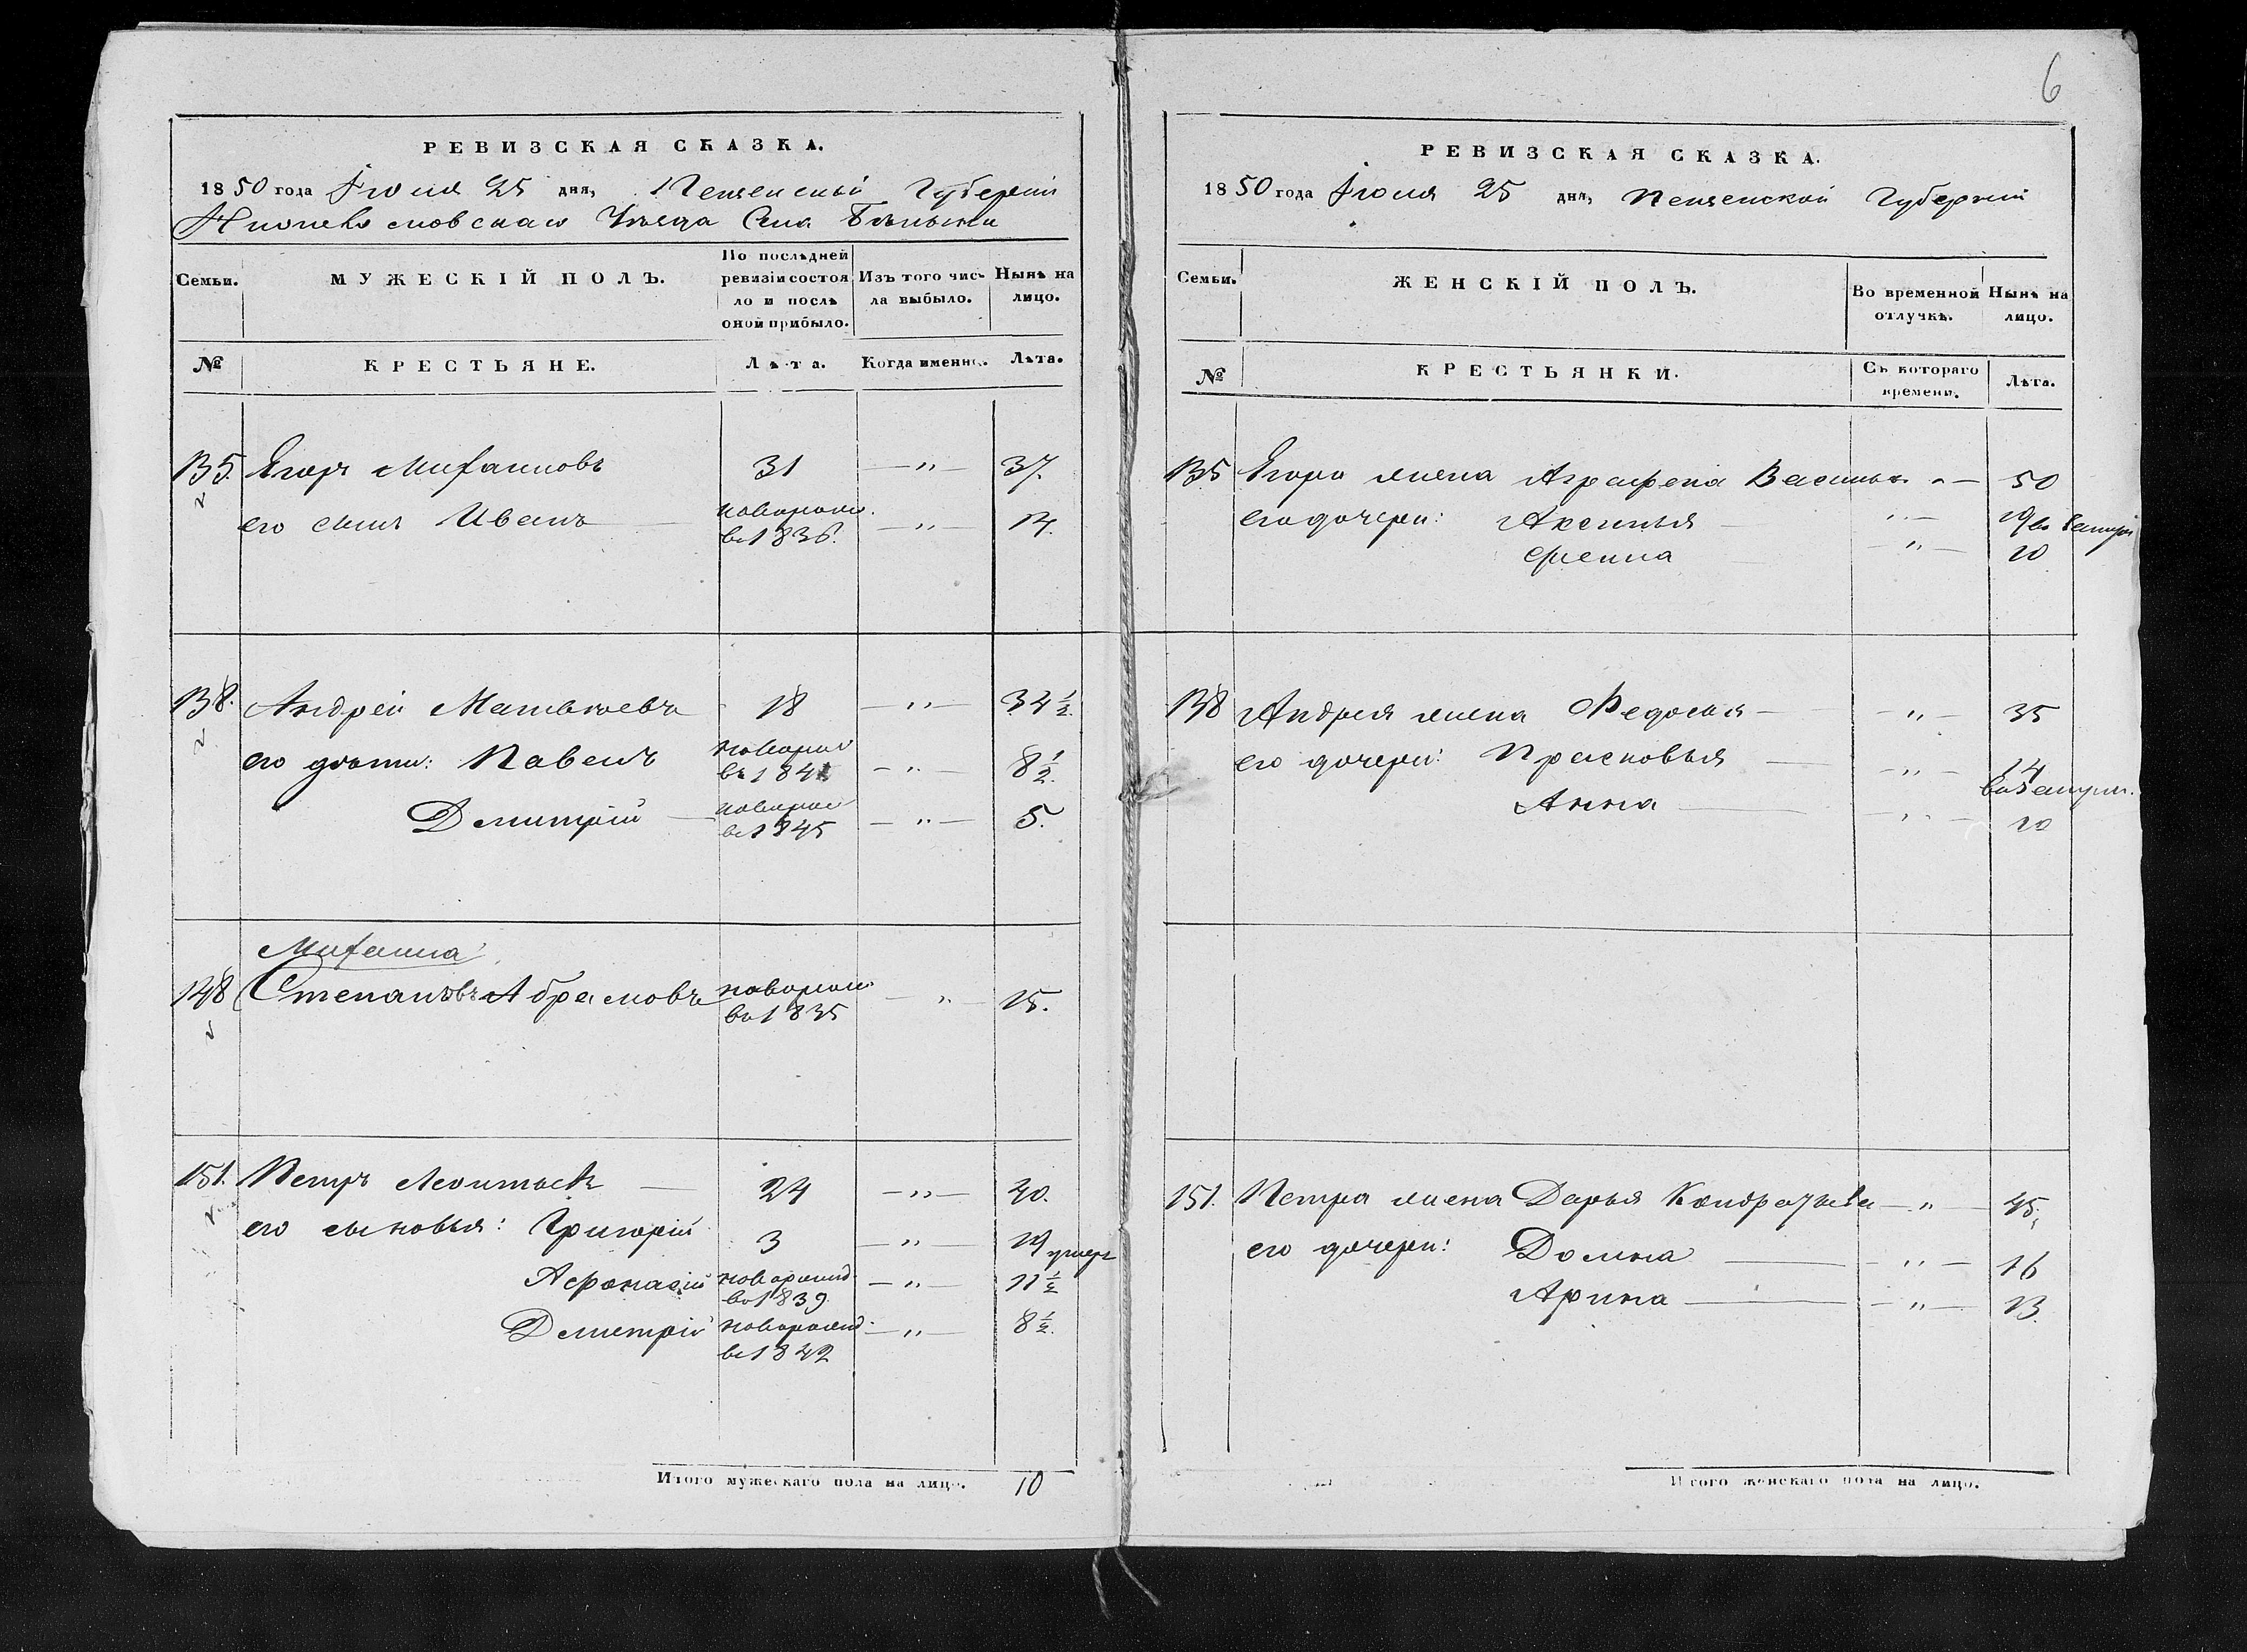 РЕВИЗСКАЯ СКАЗКА.
1850 года Іюля 25 дня, Пензенской Губерніи
Нижнеломовскаго Уѣзда Села
Семьи.
МУЖЕСКІЙ ПОЛЪ.
По послѣдней
ревизіи состоя
ло и послѣ
оной прибыло.
Изъ того чис-
ла выбыло.
Нынѣ на
лицо.
№
КРЕСТЬЯНЕ.
Лѣта.
Когда именно.
Лѣта.
135. Егоръ Михайловъ 31 — " — 37.
его сынъ Иванъ новорожд. въ 1836. — " — 14.
138. Андрей Матвѣевъ 18 — " — 34 ½.
его дѣти: Павелъ новорожд въ 1841 — " — 8 ½.
Дмитрій новорожд въ 1845 — " — 5.
Михаила
148 Степановъ Абрамовъ новорожд въ 1835 — " — 15.
151. Петръ Леонтьевъ — 24 — " — 40.
его сыновья: Григорій 3 — " — 19 умеръ
Афонасій новорожд. въ 1839 — " — 11 ½
Дмитрій новорожд. въ 1842 — " — 8 ½.
Итого мужескаго пола на лицо. 10
6
РЕВИЗСКАЯ СКАЗКА.
1850 года Іюля 25 дня, Пензенской Губерніи
Семьи.
ЖЕНСКІЙ ПОЛЪ.
Во временной
отлучкѣ.
Нынѣ на
лицо.
№
КРЕСТЬЯНКИ.
Съ котораго
времени.
Лѣта.
135 Егора жена Аграфена Васильев " — 50
его дочери: Аксинья — " — 19 въ замуж
— " — 10
138 Андрея жена Федосья — — " — 35
его дочери: Прасковья — — " — 14
въ замуж.
Анна — — " — 10
151. Петра жена Дарья Кондратьева — " — 45.
его дочери: Домна — — " — 16
Арина — — " — 13.
Итого женскаго пола на лицо.